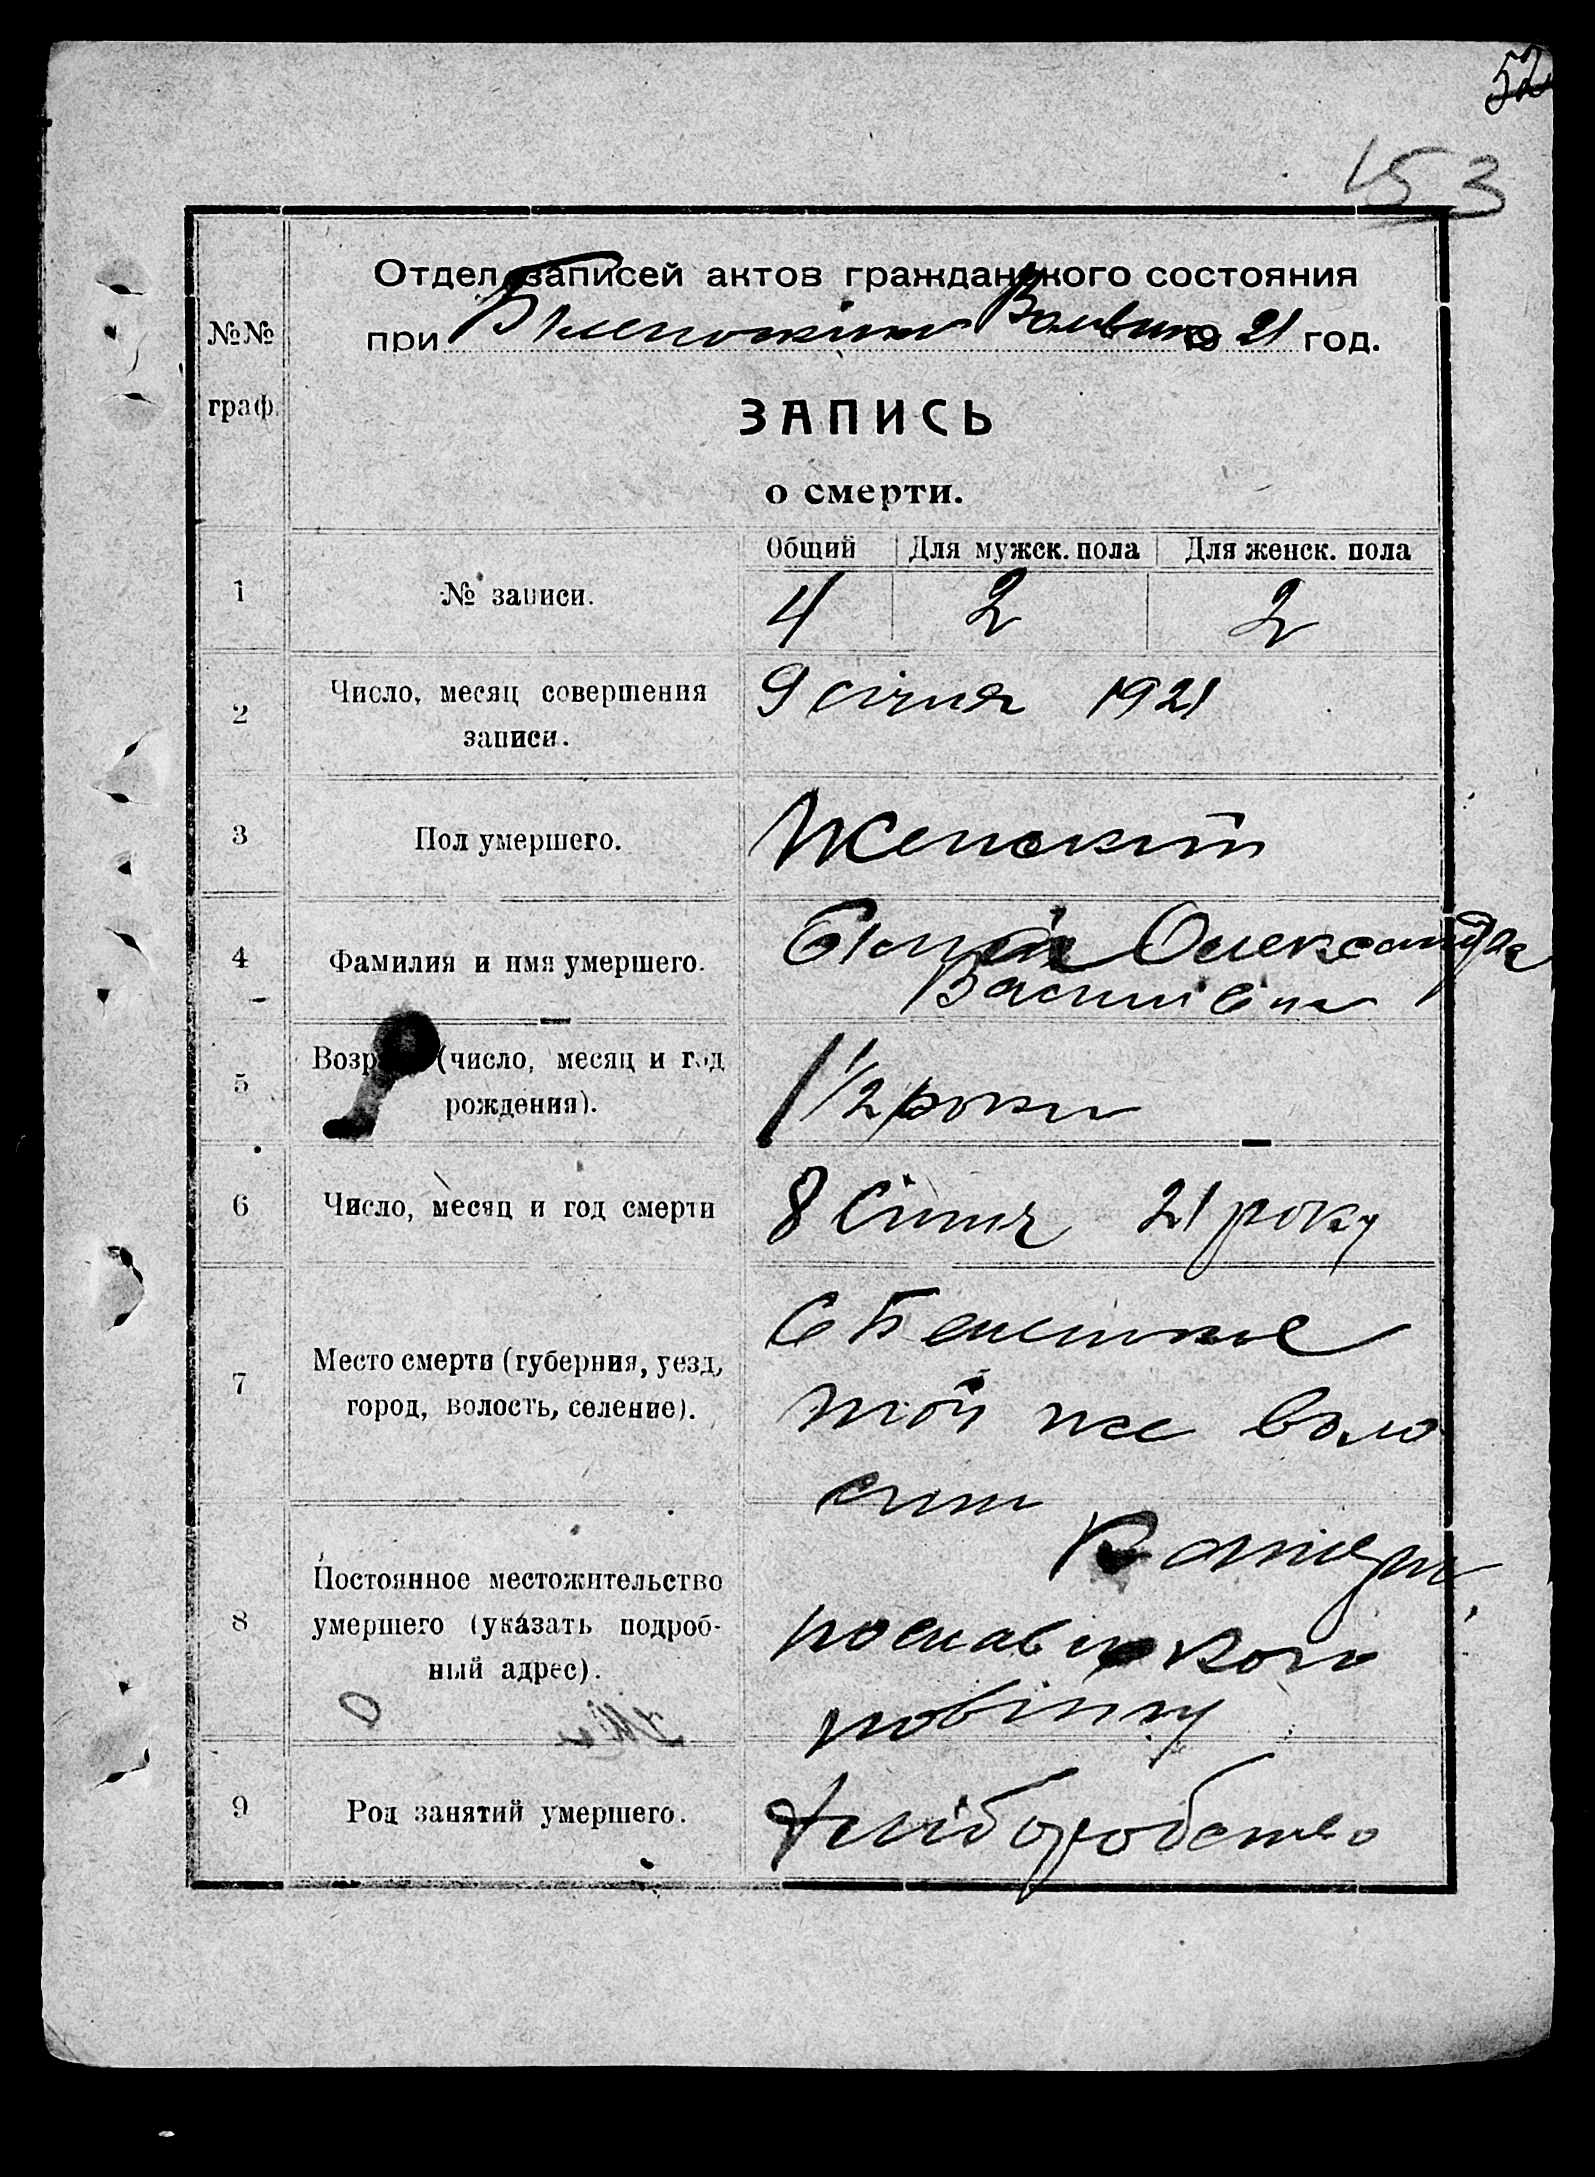 52
153
Отдел записей актов гражданского состояния
при Волвик 1921 год.
№№
граф.
ЗАПИСЬ
о смерти.
Общий Для мужск. пола Для женск. пола
1 № записи. 4 2 2
2 Число, месяц совершения записи. 9 січня 1921
3 Пол умершего. Женский
4 Фамилия и имя умершего. Олександра
Василівна
5 Возр (число, месяц и год
рождения). 1 1/2 роки
6 Число, месяц и год смерти 8 Січня 21 року
7 Место смерти (губерния, уезд,
город, волость, селение).
той же воло
сти
8 Постоянное местожительство
умершего (указать подроб-
ный адрес).
Катери
нославського
повіту
9 Род занятий умершего. Хліборобство